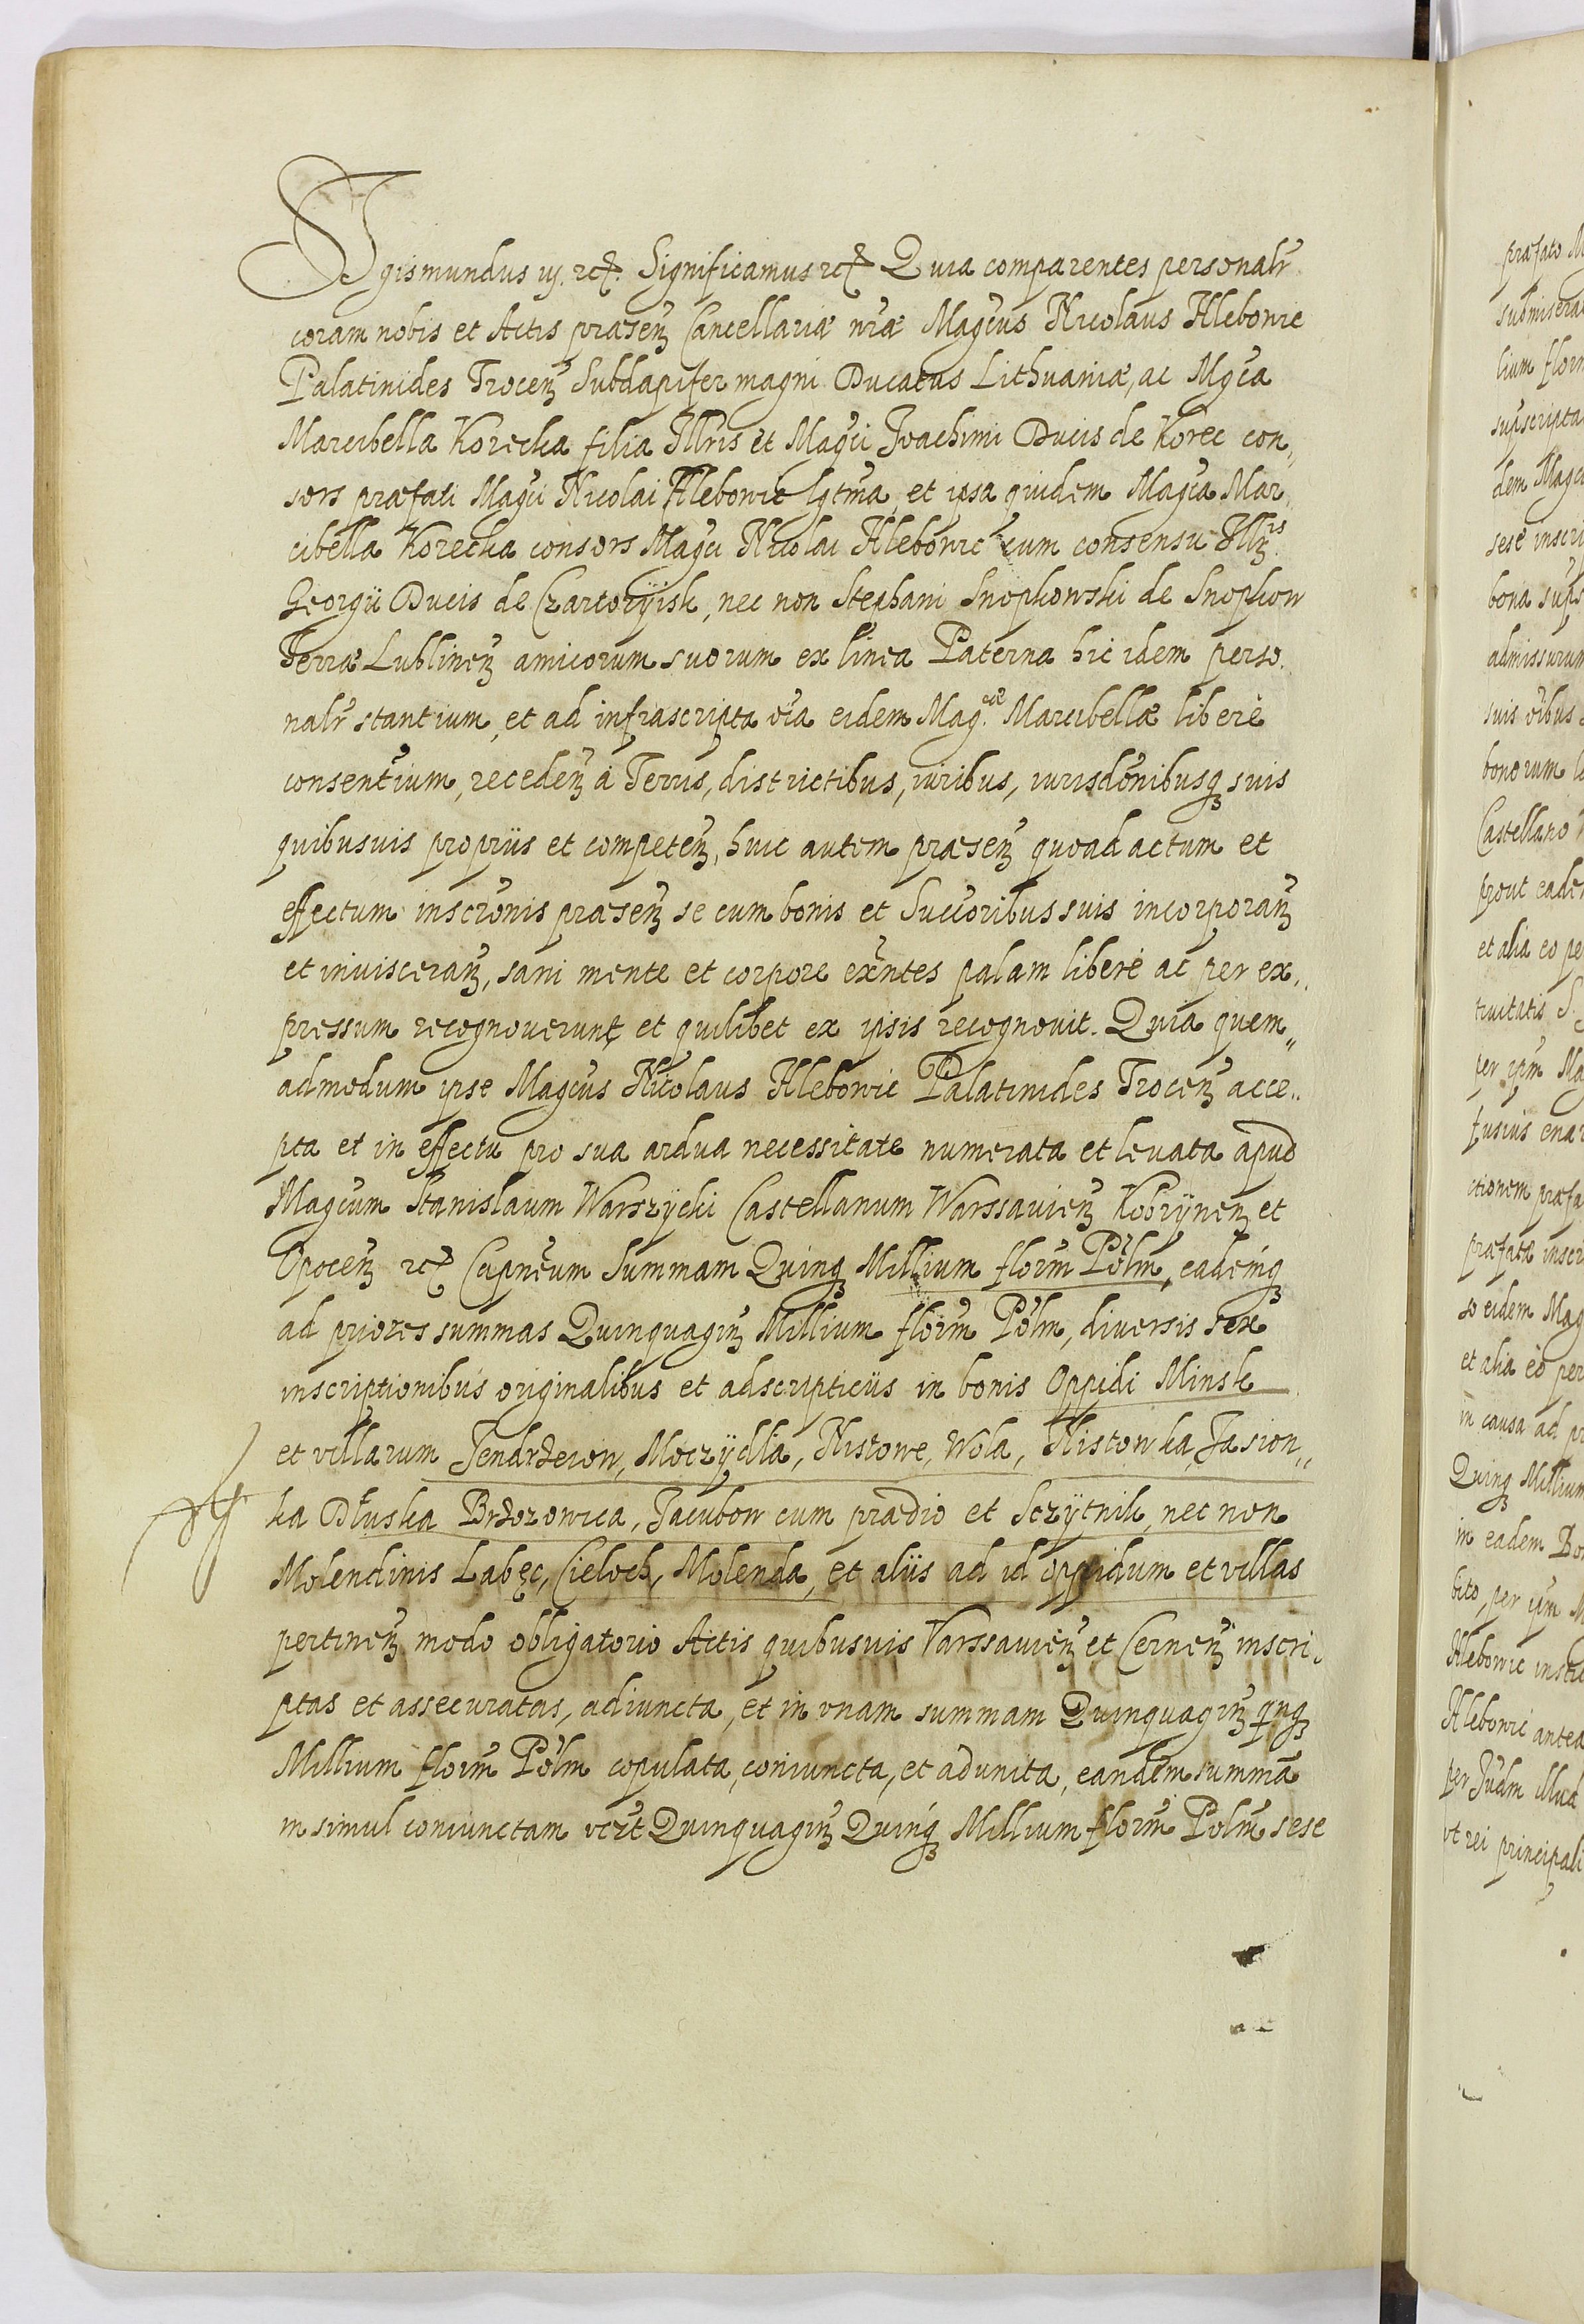 Sigismundus iij. etc. Significamus etc. Quia comparentes personalr
coram nobis et Actis præsen̄ Cancellariæ nr̄æ Magcus Nicolaus Hlebowic
Palatinides Trocen̄ Subdapifer magni Ducatus Lithuaniæ, ac Mgca
Marcibella Korecka filia Illris et Magci Joachimi Ducis de Korec con„
sors præfati Magci Nicolai Hlebowic lgtma, et ipsa quidem Magca Mar„
cibella Korecka consors Magci Nicolai Hlebowic cum consensu Illris
Georgii Ducis de Czartoryisk, nec non Stephani Snopkowski de Snopkow
Terræ Lublinen̄ amicorum suorum ex linea Paterna hic idem perso„
nalr stantium, et ad infrascripta oi̅a eidem Mag.cæ Marcibellæ liberè
consentium, receden̄ à Terris, districtibus, iuribus, iurisdōnibusq suis
quibusuis propriis et competen̄, huic autem præsen̄ quoad actum et
effectum inscrōnis præsen̄ se cum bonis et Succoribus suis incorporan̄
et inuisceran̄, sani mente et corpore exn̄tes palam liberè ac per ex„
pressum recognoverunt et quilibet ex ipsis recognovit. Quia quem„
admodum ipse Magcus Nicolaus Hlebowic Palatinides Trocen̄ acce„
pta et in effectu pro sua ardua necessitate numerata et leuata apud
Magcum Stanislaum Warszycki Castellanum Warssauien̄ Kobrÿnen̄ et
Opocen̄ etc. Capnēum Summam Quinq Millium flor̄m Pol̄m, eademq
ad priores summas Quinquagin̄ Millium flor̄m Pol̄m, diversis sex
inscriptionibus originalibus et adscripticiis in bonis Oppidi Minsk
et villarum Jendrzeiow, Moczydła, Nistowe, Wola, Nistowka, Jasion„
ka Dłuska Brzozowica, Jacubow cum prædio et Sczytnik, nec non
Molendinis Labęc, Cieloch, Molenda, et aliis ad id oppidum et villas
pertinen̄ modo obligatorio Actis quibusuis Varssauien̄ et Cernen̄ inscri„
ptas et assecuratas, adiuncta, et in vnam summam Quinquagin̄ qnq
Millium flor̄m Pol̄m copulata, coniuncta, et adunita, eandem summā
in simul coniunctam vert̄ Quinquagin̄ Quinq Millium flor̄m Pol̄m sese
præfato
lium flor
suis oibus
bonorum
Castellano
prout eade
et alia eo pe
præfatæ inscr
so eidem Mag
et alia eo per
in causa ad pr
Quinq Millium
in eadem Bo
Hlebowic inscr
Hlebowic antea
vt rei principali